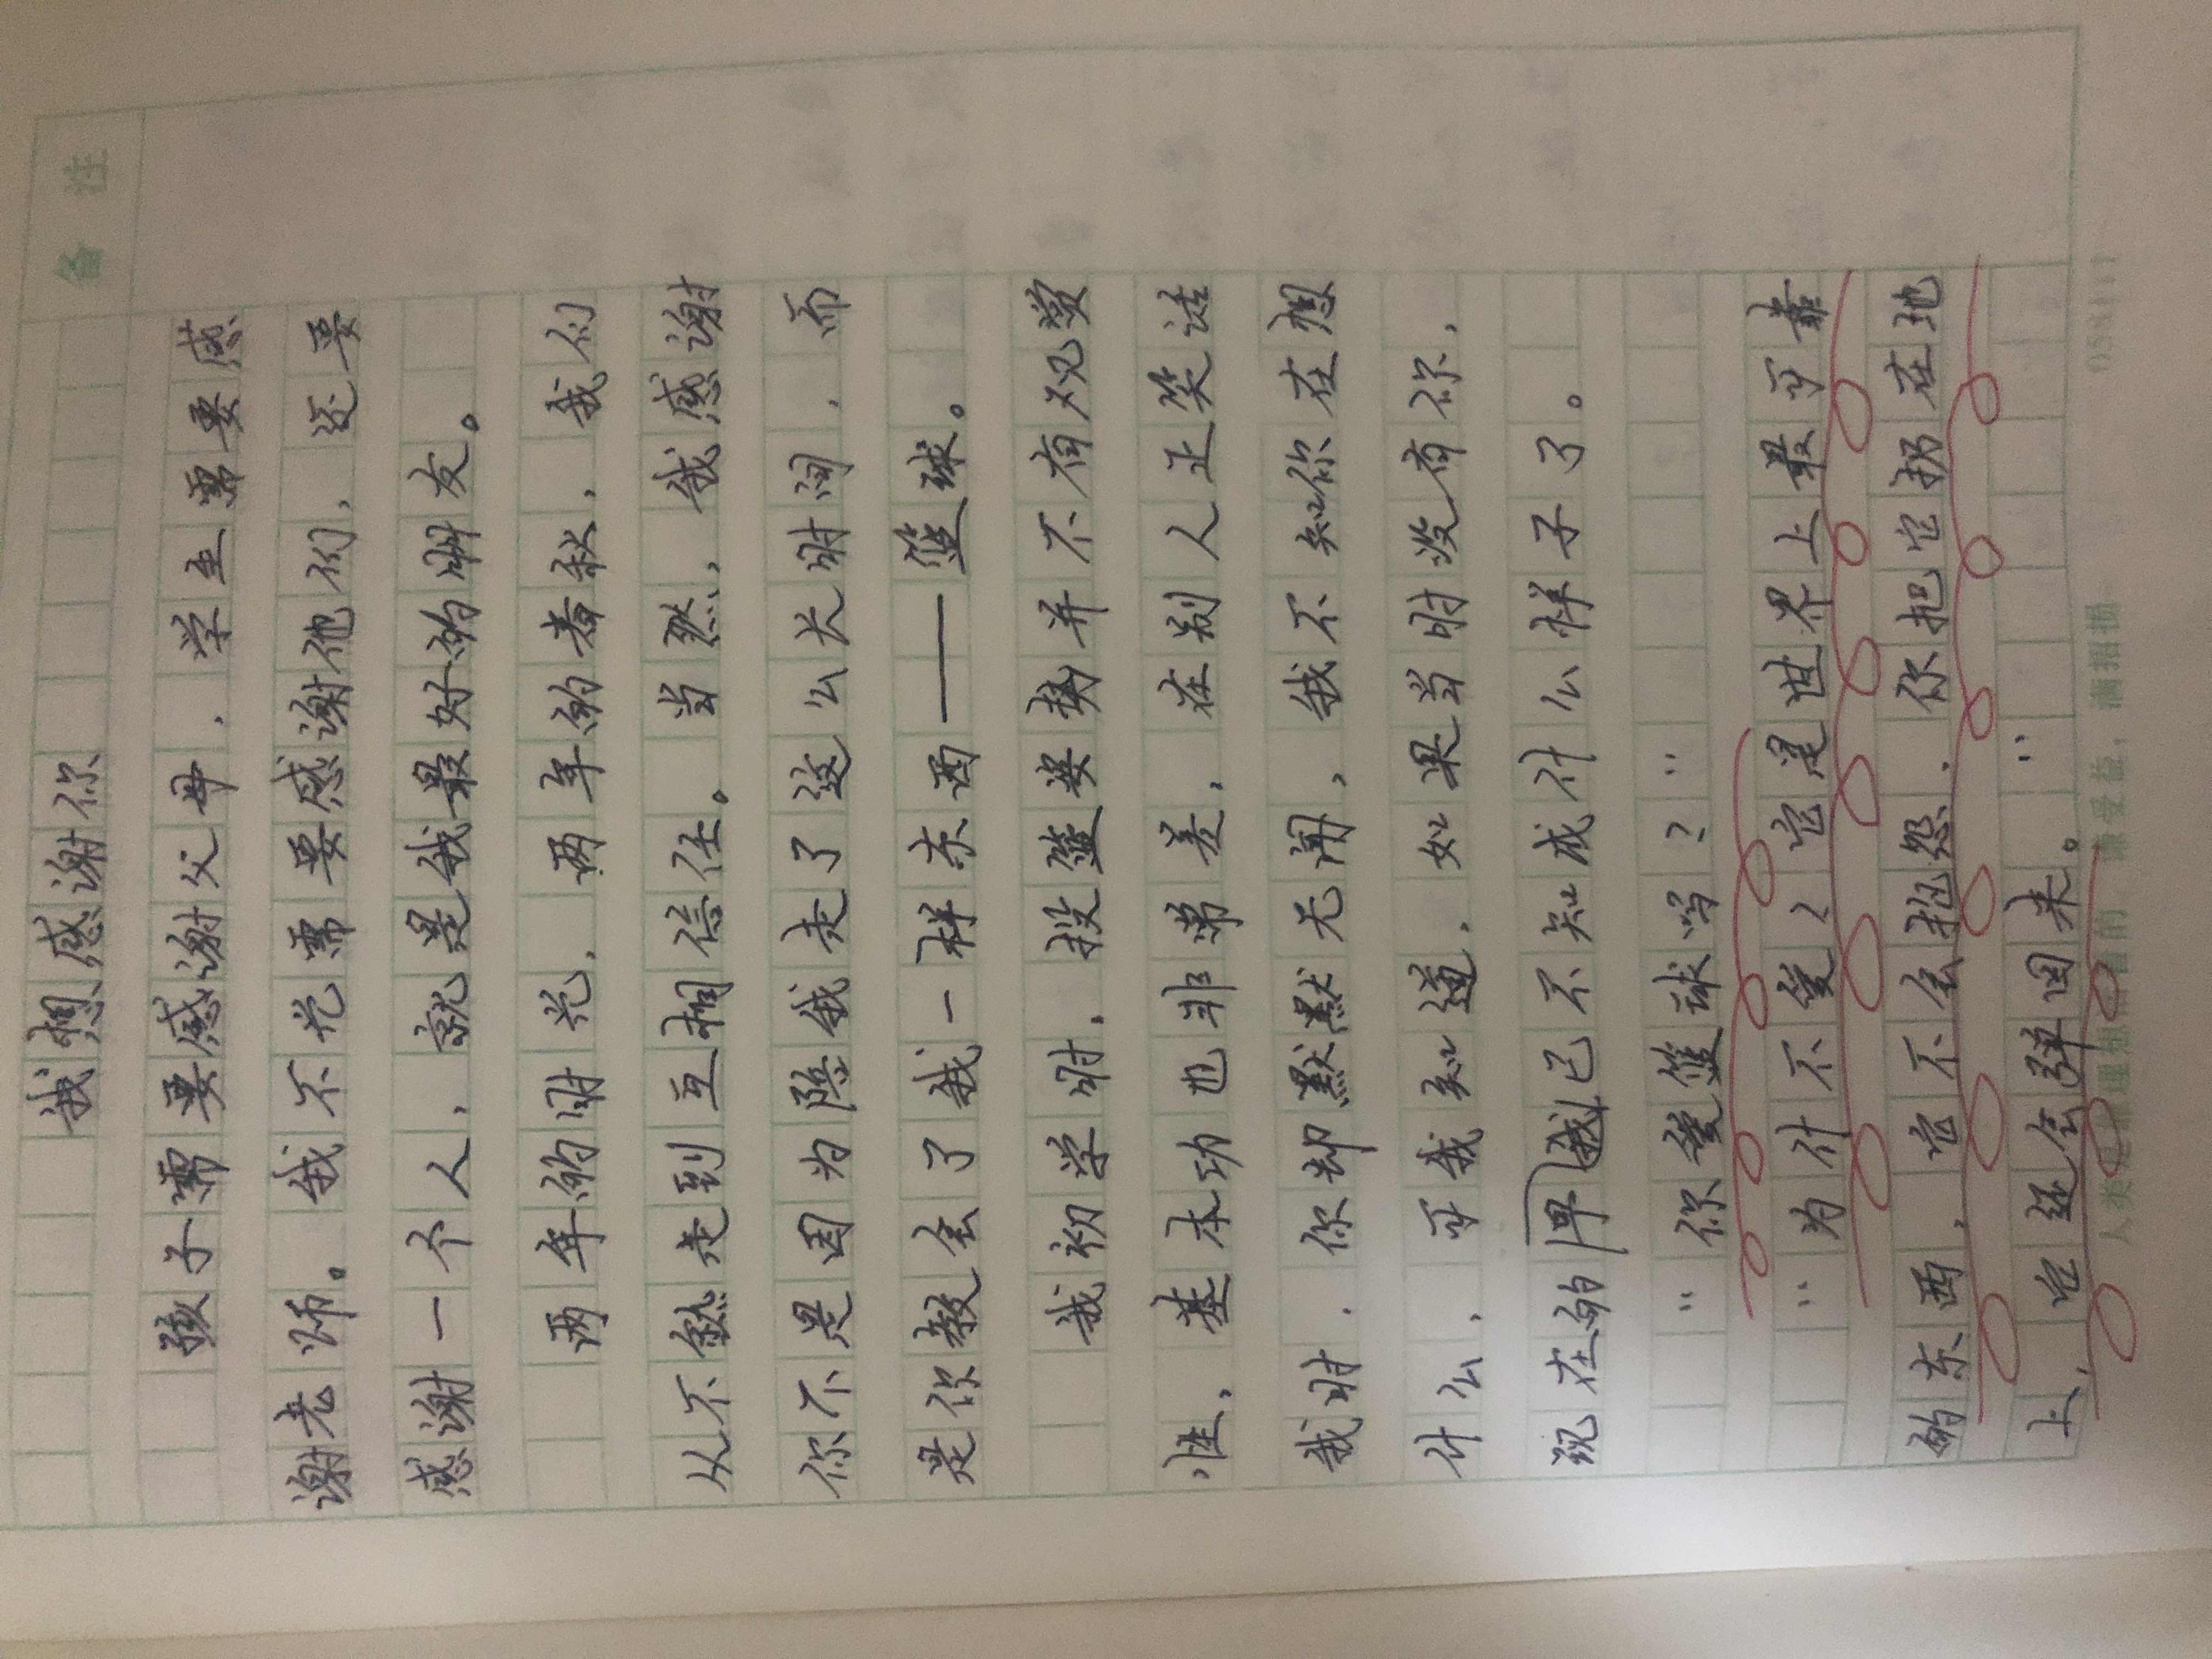 备 注
我想感谢你
孩子需要感谢父母，学生需要感
谢老师。我不光需要感谢他们，还要
感谢一个人，就是我最好的朋友。
两年的时光，两年的春秋，我们
从不熟走到互相信任。当然，我感谢
你不是因为陪我走了这么长时间，而
是你教会了我一样东西——篮球。
我初学时，投篮姿势并不有观赏
性，基本功也非常差，在别人正笑话
我时，你却默默无闻，我不知你在想
什么，可我知道，如果当时没有你，
现在的早我已不知成什么样子了。
“你爱篮球吗？”
“为什不爱？它是世界上最可靠
的东西，它不会抱怨，你把它扔在地
上，它还会弹回来。”